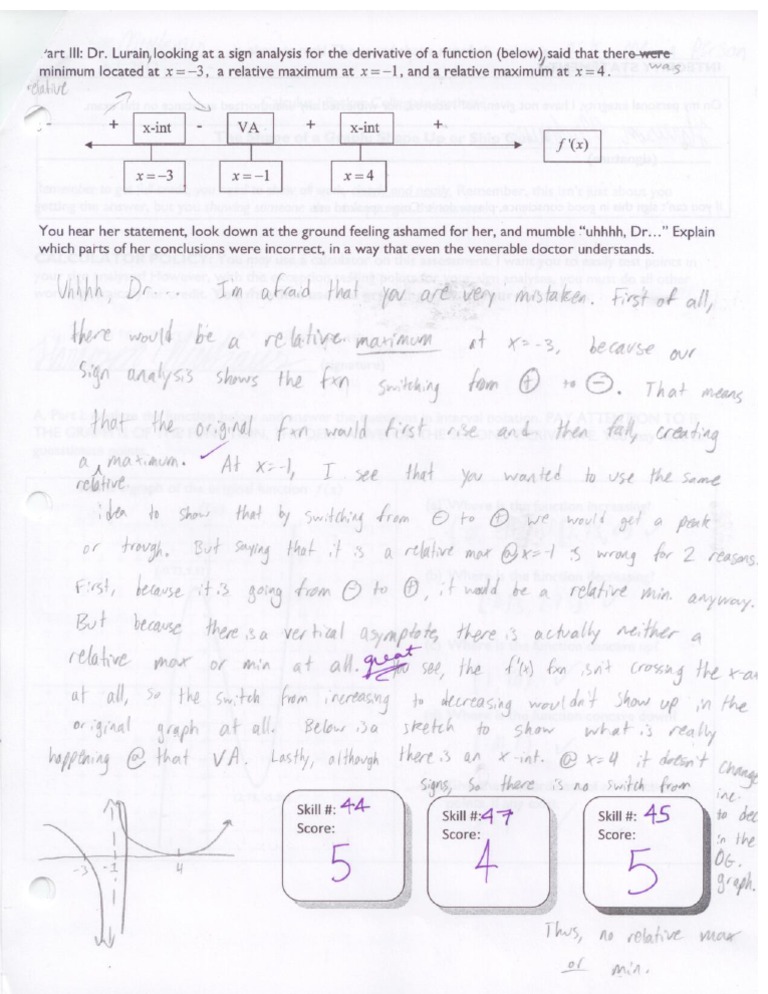 art III: Dr. Lurain, looking at a sign analysis for the derivative of a function (below), said that there were was
minimum located at x = −3, a relative maximum at x = −1, and a relative maximum at x = 4.
relative
- + x-int - VA + x-int + f '(x)
x = −3 x = −1 x = 4
You hear her statement, look down at the ground feeling ashamed for her, and mumble "uhhhh, Dr…" Explain
which parts of her conclusions were incorrect, in a way that even the venerable doctor understands.
Uhhhh, Dr.... Im afraid that you are very mistaken. First of all,
there would be a relative maximum at x=-3, because our
sign analysis shows the fxn switching from ⊕ to ⊖. That means
that the original fxn would first rise and then fall, creating
a relative maximum. At x=-1, I see that you wanted to use the same
idea to show that by switching from ⊖ to ⊕ we would get a peak
or trough. But saying that it is a relative max @x=-1 is wrong for 2 reasons.
First, because it is going from ⊖ to ⊕, it would be a relative min. anyway.
But because there is a vertical asymptote, there is actually neither a
relative max or min at all. great You see, the f'(x) fxn isn't crossing the x-ax
at all, so the switch from increasing to decreasing wouldn't show up in the
original graph at all. Below is a sketch to show what is really
happening @ that VA. Lastly, although there is an x-int. @ x=4 it doesn't change
signs, so there is no switch from
inc.
to dec
in the
OG.
graph.
Skill #: 44
Score:
5
Skill #: 47
Score:
4
Skill #: 45
Score:
5
-3 -1 4
Thus, no relative max
or min.